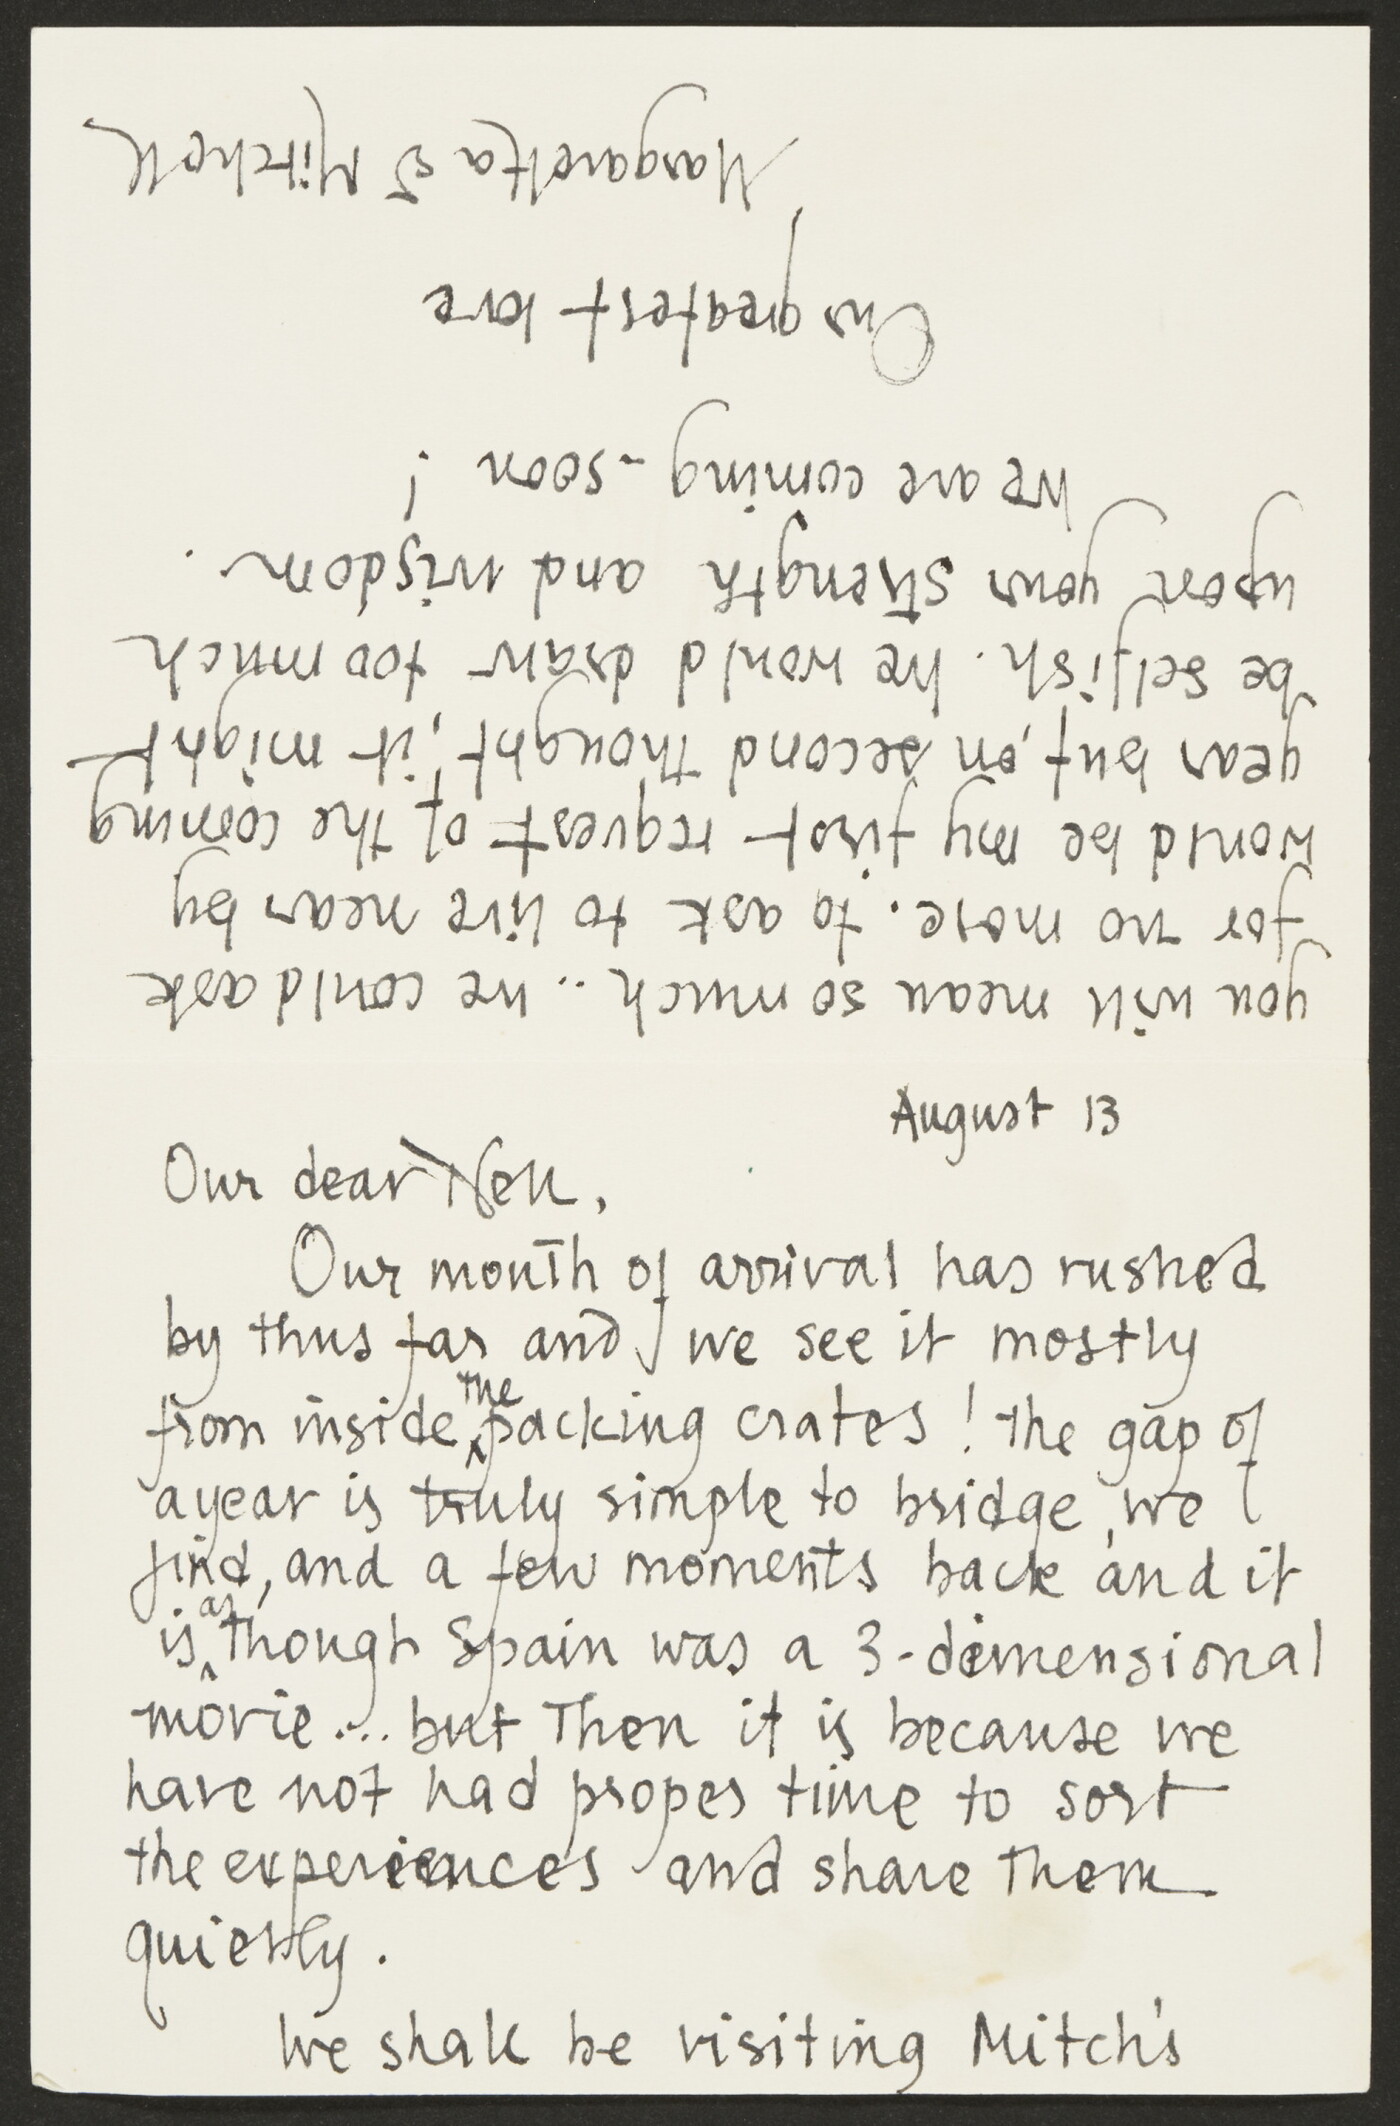 August 13
Our dear Nell,
Our month of arrival has rushed
by thus far and we see it mostly
from inside the packing crates! The gap of
a year is truly simple to bridge, we
find, and a few moments back and it
is as though Spain was a 3-dimensional
movie... but then it is because we
have not had proper time to sort
the experiences and share them
quietly.
We shall be visiting Mitch's
you will mean so much .. we could ask
for no more. To ask to live near by
would be my first request of the coming
year but, on second thought, it might
be selfish. We would draw too much
upon your strength and wisdom.
We are coming - soon!
Our greatest love
Margaretta & Mitchell